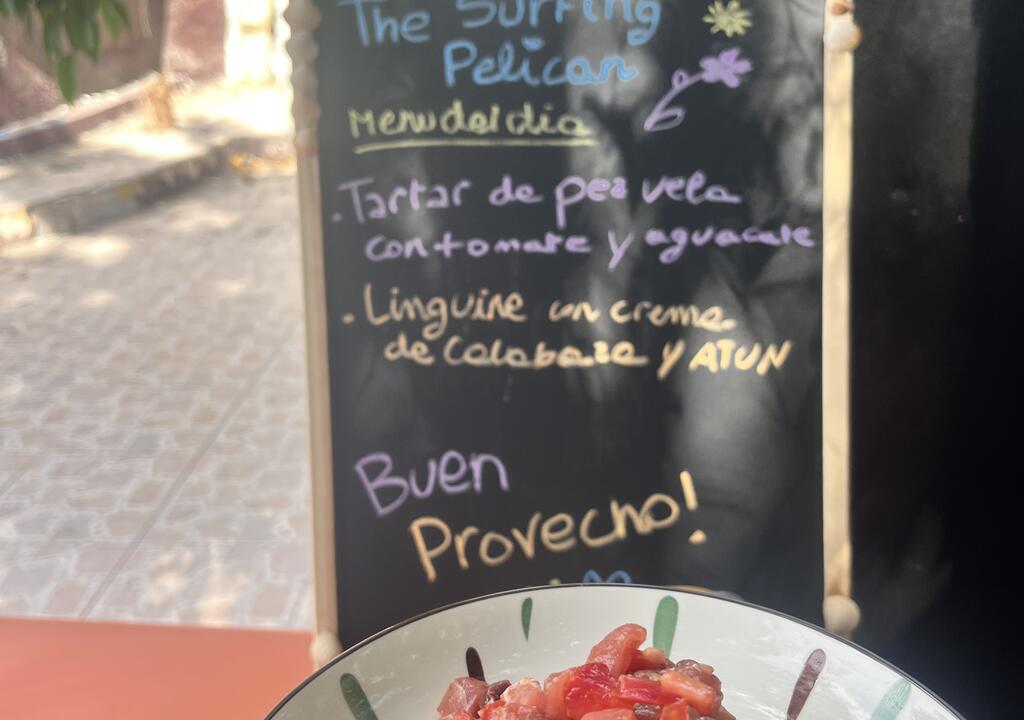 The Surfing
Pelican
Menu del dia
. Tartar de pez vela
con tomate y aguacate
. Linguine con crema
de Calabaza y ATUN
Buen
Provecho!